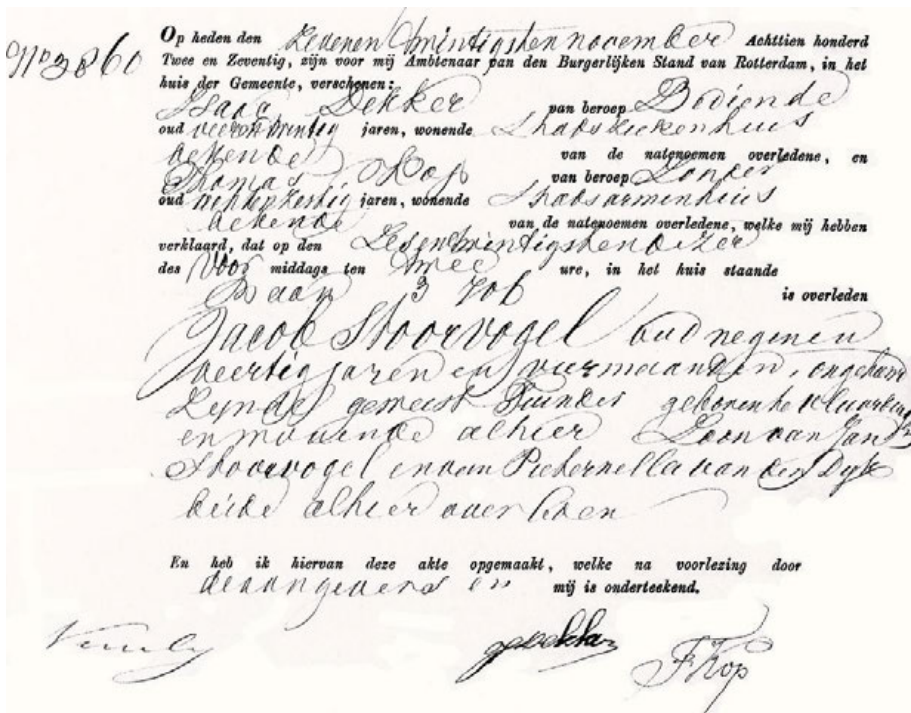 No 3860
Op heden den Zevenen twintigsten november Achttien honderd
Twee en Zeventig, zijn voor mij Ambtenaar van den Burgerlijken Stand van Rotterdam, in het
huis der Gemeente, verschenen:
Isaac Dekker van beroep Bediende
oud vierentwintig jaren, wonende Stadsziekenhuis
bekende van de natenoemen overledene, en
Thomas Kop van beroep Zonder
oud jaren, wonende Stadsarmenhuis
bekende van de natenoemen overledene, welke mij hebben
verklaard, dat op den Zesentwintigsten dezer
des Voor middags ten twee ure, in het huis staande
Baan 3 706 is overleden
Jacob Stoorvogel oud negenen
veertig jaren en vier maanden, ongehuwd
zynde geweest Tuinder geboren te
en wonende alhier Zoon van Jan
Stoorvogel en van Pieternella van den Dyk
beide alhier overleden
En heb ik hiervan deze akte opgemaakt, welke na voorlezing door
de aangevers en mij is onderteekend.
Dekker
T Kop